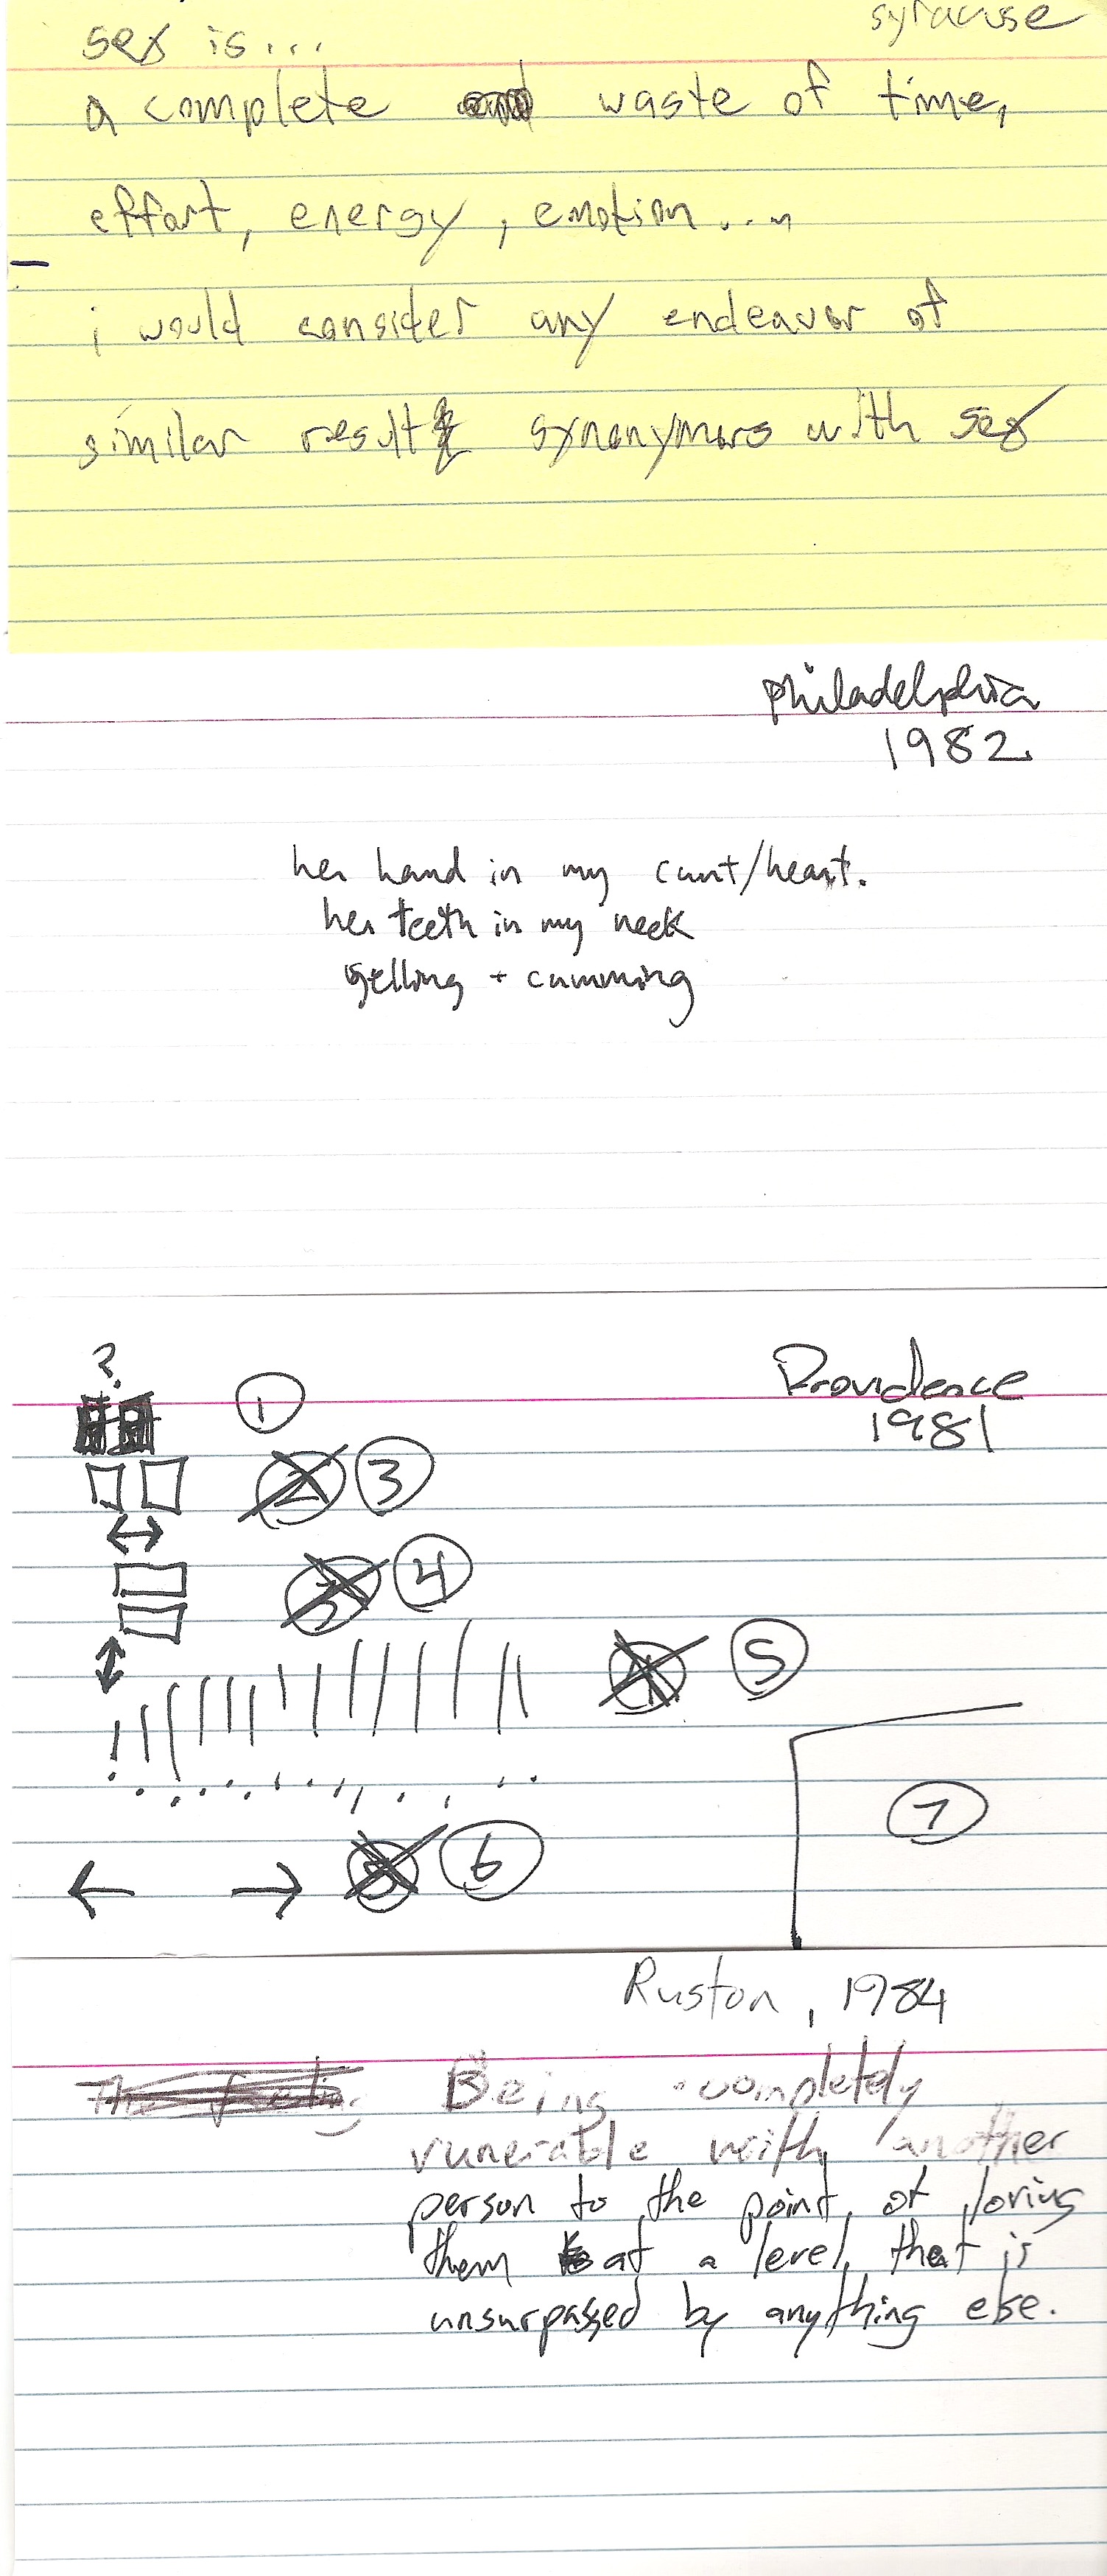 syracuse
sex is...
a complete waste of time,
effort, energy, emotion...
i would consider any endeavor of
similar result synonymous with sex
philadelphia
1982.
her hand in my cunt/heart.
her teeth in my neck
yelling + cumming
Providence
1981
?
1
2 3
3 4
4 5
7
5 6
Ruston, 1984
The feeling Being completely
vunerable with another
person to the point of loving
them at a level that is
unsurpassed by anything else.